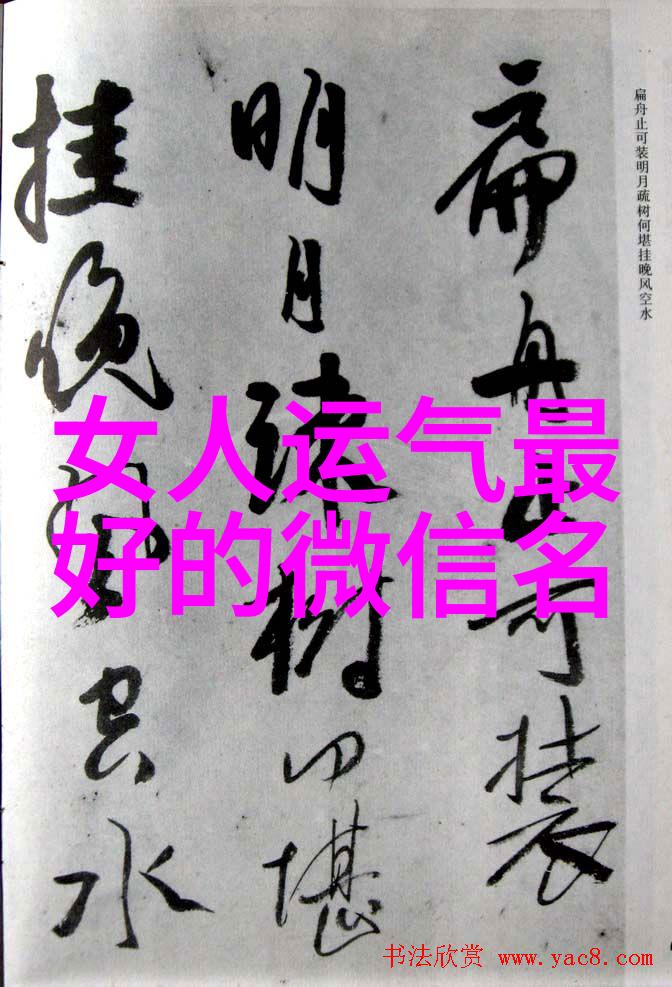 扁舟止可装
明月疏树何堪
挂晚风空水
扁舟止可装明月疏树何堪挂晚风空水
女人运气最
好的微信名
书法欣赏 www.yac8.com